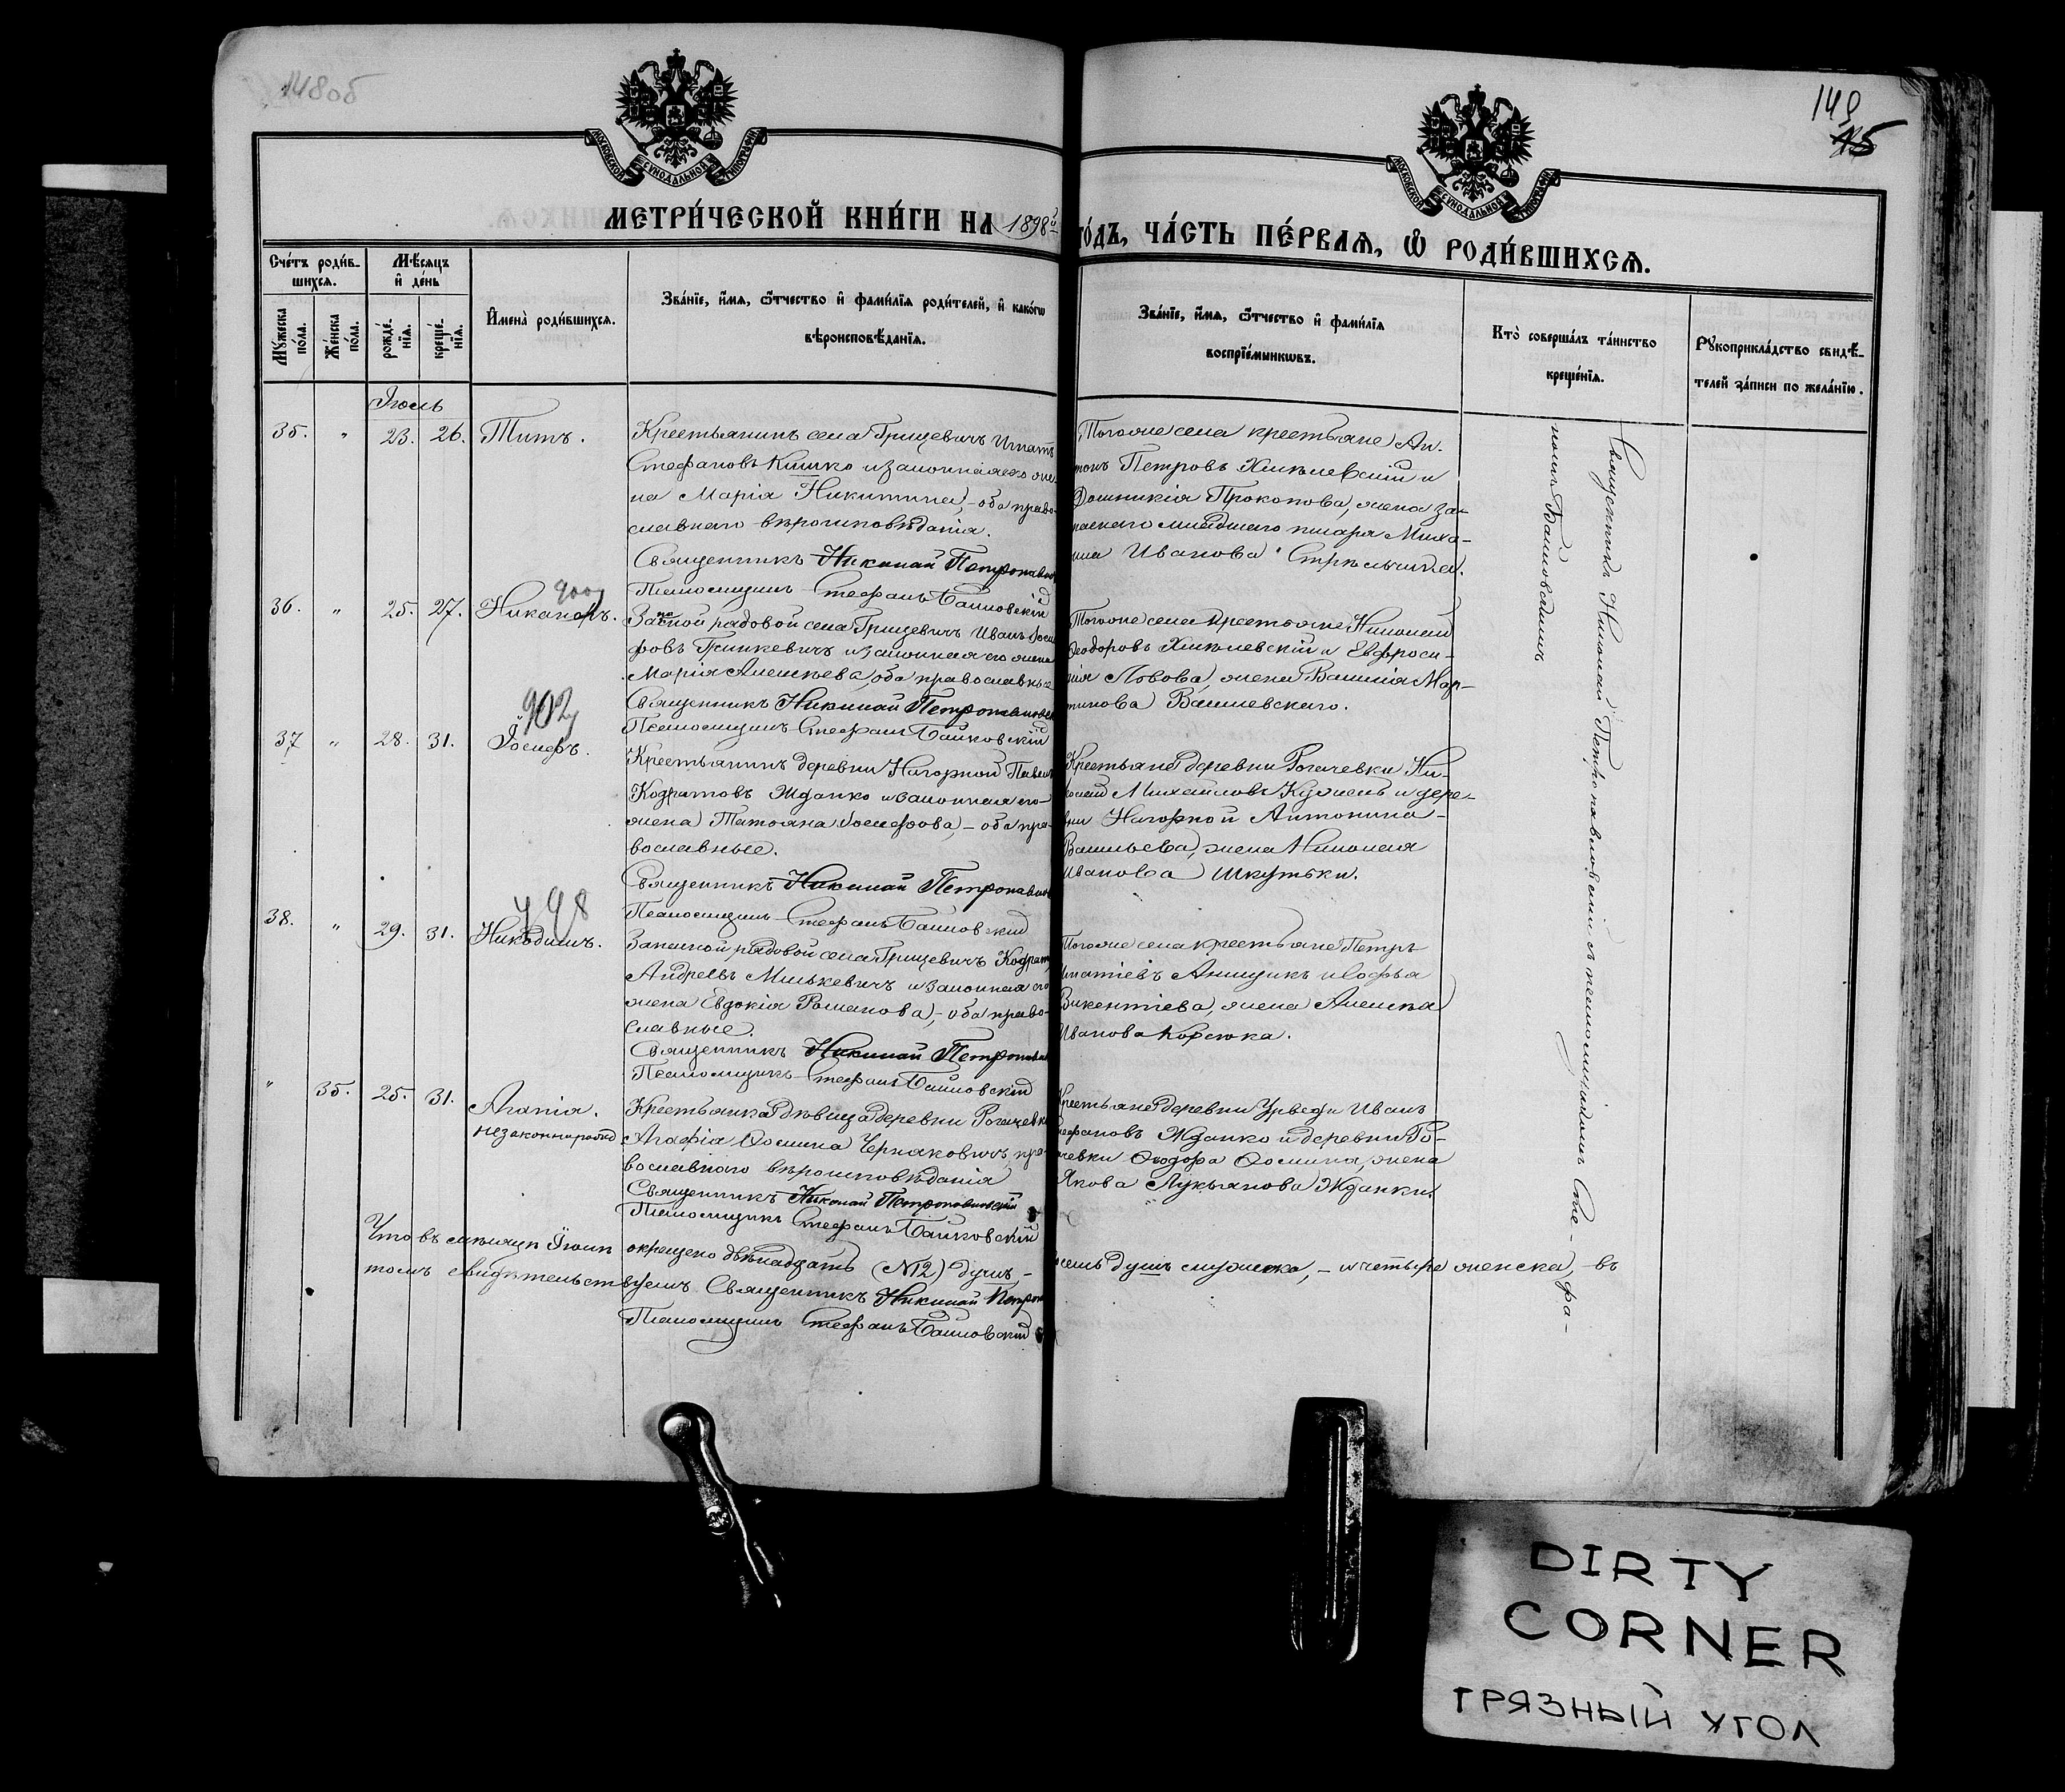 148об
149
15
МОСКОВСКОЙ СѴНОДАЛЬНОЙ ТИПОГРАФІИ
МОСКОВСКОЙ СѴНОДАЛЬНОЙ ТИПОГРАФІИ
МЕТРИ́ЧЕСКОЙ КНИ́ГИ НА 1898й
ГО́ДЪ, ЧА́СТЬ ПЕ́РВАѦ, Ѡ РОДИ́ВШИХСѦ.
Сче́тъ роди́в-
шихсѧ.
Му́жеска по́ла.
Же́нска по́ла.
Мѣ́сѧцъ
и де́нь
рожде́-
нїѧ.
креще́-
нїѧ.
Имена̀ роди́вшихсѧ.
Зва́нїе, и́мѧ, ѻ́тчество и фами́лїѧ роди́телей, и како́гѡ
вѣроисповѣ́данїѧ.
Зва́нїе, и́мѧ, ѻ́тчество и фами́лїѧ
воспрїе́мникѡвъ.
Кто̀ соверша́лъ та́инство
креще́нїѧ.
Рукоприкла́дство свидѣ́-
телей за́писи по жела́нїю.
Іюль
35. " 23. 26. Титъ.
Крестьянинъ села Грицевичъ Игнатъ
Стефановъ Кишко и законная его же-
на Марія Никитина, – оба право-
славнаго вѣроисповѣданія.
Священникъ Николай Петропавлов
Псаломщикъ Стефанъ Банковскій
Тогоже села крестьяне Ан-
тонъ Петровъ Хмѣлевскій и
Домникія Прокопова, жена за-
паснаго младшаго писаря Миха-
ила Иванова Стрѣльчика.
900
36. " 25. 27. Никаноръ.
Запасной рядовой села Грицевичъ Иванъ Іоси
фовъ Гринкевичъ и законная его жена
Марія Алексѣева, оба православные
Священникъ Николай Петропавловск
Псаломщикъ Стефанъ Банковскій
Тогоже села крестьяне Николай
Ѳеодоровъ Хмѣлевскій и Евфроси-
нія Львова, жена Василія Мар-
тинова Василевскаго.
902
37 " 28. 31. Іосифъ.
Крестьянинъ деревни Нагорной Павелъ
Кодратовъ Жданко и законная его
жена Татьяна Іосифова, – оба пра-
вославные.
Священникъ Николай Петропавлов
Псаломщикъ Стефанъ Банковскій
Крестьяне деревни Рогачевки Ни-
колай Михайловъ Кужель и дере-
вни Нагорной Антонина
Васильева, жена Николая
Иванова Шкутьки.
498
38. " 29. 31. Никодимъ.
Запасной рядовой села Грицевичъ Кодратъ
Андреевъ Милькевичъ и законная его
жена Евдокія Романова, – оба право-
славные.
Священникъ Николай Петропавл
Псаломщикъ Стефанъ Банковскій
Тогоже села крестьяне Петръ
Игнатіевъ Анищикъ и Софья
Викентіева, жена Алексѣя
Иванова Корсюка.
" 35. 25. 31. Агапія.
незаконнорожд
Крестьянка дѣвица деревни Рогачевки
Агафія Ѳомина Черняковичъ, пра-
вославнаго вѣроисповѣданія
Священникъ Николай Петропавловскій
Псаломщикъ Стефанъ Банковскій
Крестьяне деревни Иванъ
Стефановъ Жданко и деревни Ро-
гачевки Ѳеодора Ѳомина, жена
Якова Лукьянова Жданки.
Что въ мѣсяцѣ Іюлѣ окрещено двѣнадцать (№12) душъ, –
восемь душъ мужеска, – и четыре женска, – въ
томъ свидѣтельствуемъ Священникъ Николай Петроп
Псаломщикъ Стефанъ Банковскій
Священникъ Николай Петропавловскій съ псаломщикомъ Сте-
фа-
номъ Банковскимъ
DIRTY
CORNER
ГРЯЗНЫЙ УГОЛ